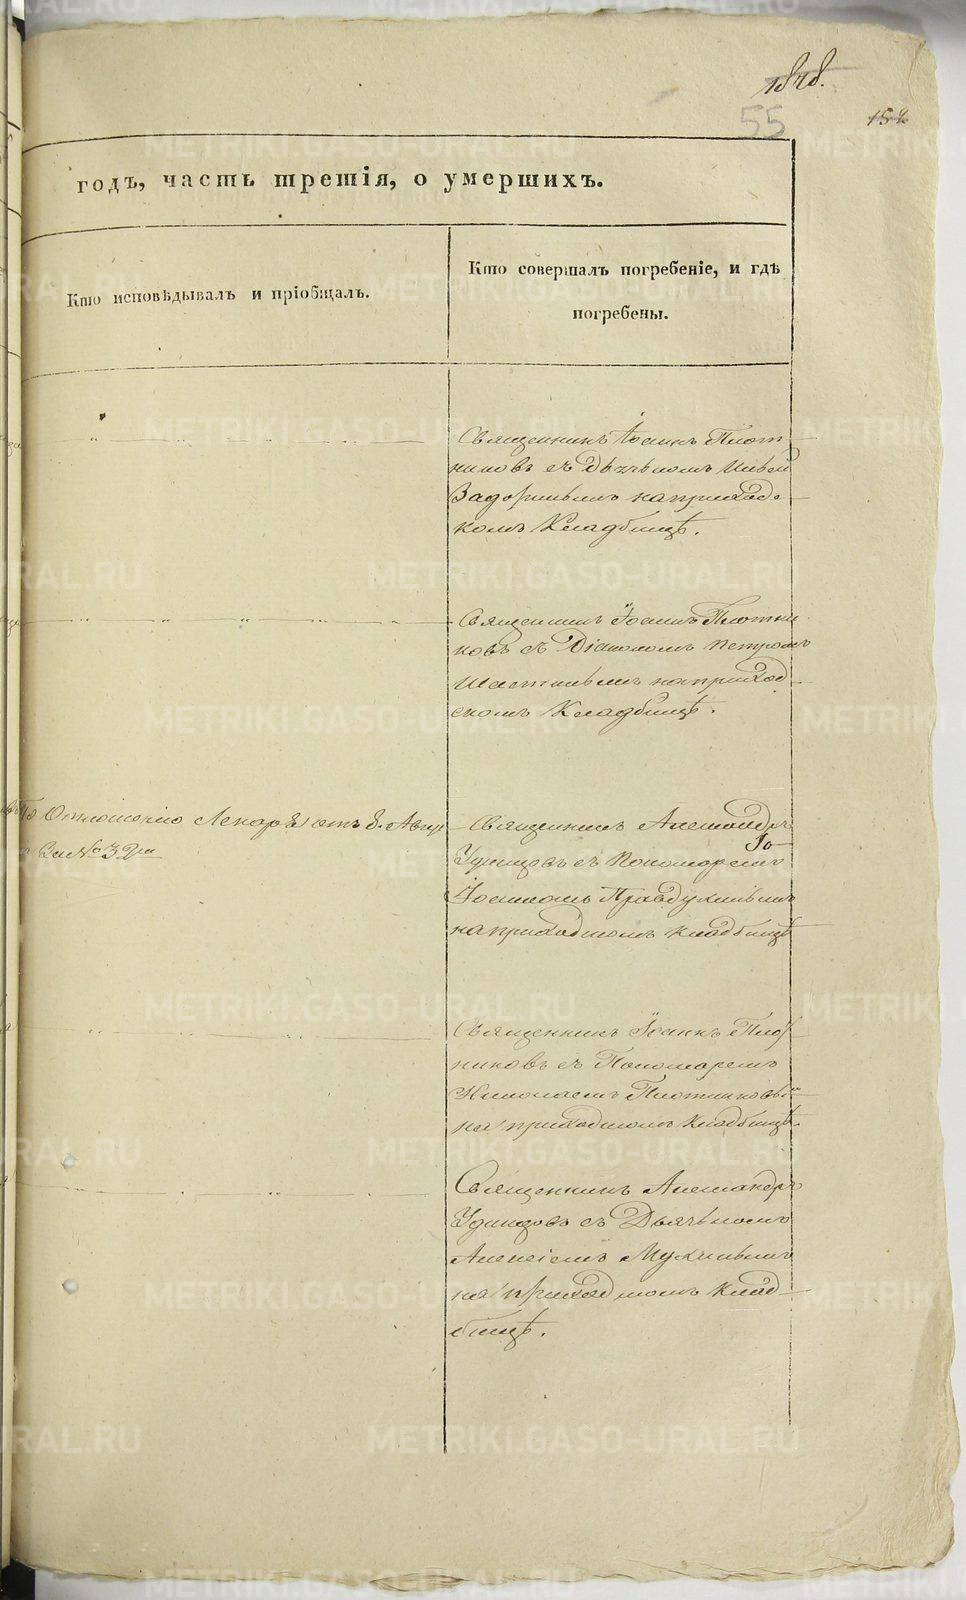 1848.
55
152
годъ, часть третія, о умершихъ.
Кто исповѣдывалъ и пріобщалъ.
Кто совершалъ погребеніе, и гдѣ
погребены.
Священникъ Іоаннъ Плот-
никовъ съ
на приход-
комъ Кладбищѣ.
Священникъ Іоаннъ Плотни-
ковъ съ Діакономъ Петромъ
на приход-
скомъ Кладбищѣ.
По Отношенію Лекаря отъ 8. Авгус
За № 32м
Священникъ Александръ
Удинцовъ съ Пономаремъ Іо-
Іоанномъ Правдухинымъ
на приходскомъ кладбищѣ
Священникъ Іоаннъ Плот-
никовъ съ Пономаремъ
Николаемъ Плотниковымъ
на приходскомъ Кладбищѣ.
Священникъ Александръ
Удинцовъ съ Дьячькомъ
Алексіемъ
на приходскомъ Клад-
бищѣ.
METRIKI.GASO-URAL.RU